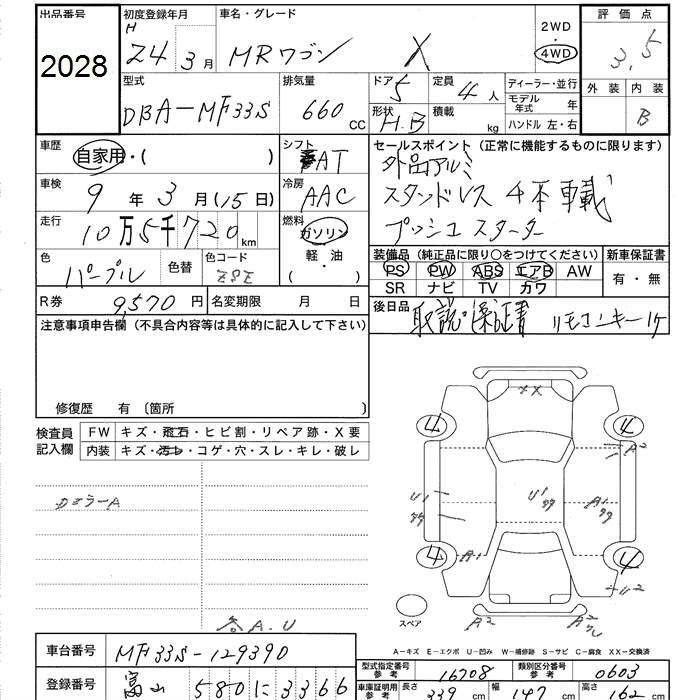 出品番号 初度登録年月 車名・グレード 2WD 評価点
2028 H 24年 3月 MRワゴン X 4WD 3.5
型式 排気量 ドア 5 定員 4人 ディーラー・並行 外装 内装
DBA-MF33S 660 CC 形状 H.B 積載 kg モデル年式 年 B
ハンドル 左・右
車歴 自家用・( ) シフト AT セールスポイント (正常に機能するものに限ります)
車検 9年 3月 (15日) 冷房 AAC 外品アルミ
スタッドレス 4本車載
走行 10万5千720km 燃料 ガソリン 軽・油 ( ) プッシュスターター
色 パープル 色替 色コード ZSE 装備品 (純正品に限り○をつけてください) 新車保証書
PS PW ABS エアB AW 有・無
SR ナビ TV カワ
R券 9,570円 名変期限 月 日 後日品 取説 保証書 リモコンキー1ケ
注意事項申告欄 (不具合内容等は具体的に記入して下さい)
修復歴 有 〔箇所 〕
検査員記入欄 FW キズ・飛石・ヒビ割・リペア跡・X要
内装 キズ・汚レ・コゲ・穴・スレ・キレ・破レ
DミラーA
各A.U
X
4 4
A2
U1 U1 A1
4 4
A1
A2 A2
スペア
A−キズ E−エクボ U−凹み W−補修跡 S−サビ C−腐食 XX−交換済
車台番号 MF33S-129390
型式指定番号 参考 16708 類別区分番号 参考 0603
登録番号 富山 580に3366
車庫証明用 参考 長さ 339 幅 147 高さ 162